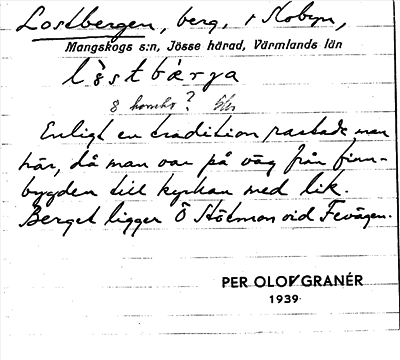 Lostbergen, berg, i Skobyn,
Mangskogs s:n, Jösse härad, Värmlands län
lòstbærja
? 
Enligt en tradition rastade man
här, då man var på väg från finn-
bygden till kyrkan med lik.
Berget ligger Ö Stömon vid Fevägen.
PER OLOF GRANÉR
1939